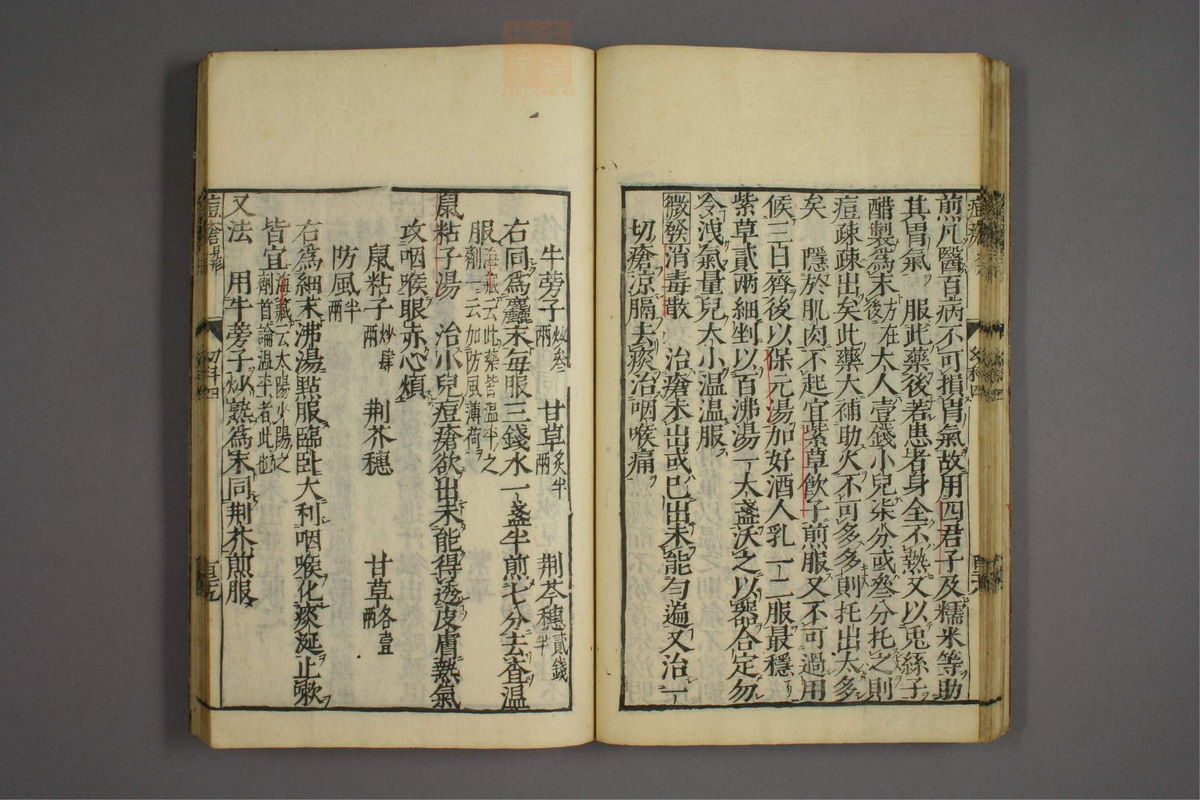 煎凡醫百病不可損胃氣故用四君子及糯米等助
其胃氣　服此藥後若患者身全不熱又以兎絲子
醋製爲末後方在大人壹錢小兒柒分或叁分托之則
痘疎疎出矣此藥大補助火不可多多則托出太多
矣　隱於肌肉不起宜紫草飲子煎服又不可過用
候三日齊後以保元湯加好酒人乳一二服最穩
紫草貳兩細剉以百沸湯一大盞沃之以器合定勿
令洩氣量兒大小温温服
微發消毒散　治瘡未出或已出未能勻遍又治一
切瘡凉膈去痰治咽喉痛
牛蒡子炒叁兩　甘草炙半兩　荆芥穗貳錢半
右同爲麤末每服三錢水一盞半煎七分去査温
服海藏云此藥皆温平之劑一云加防風薄荷
鼠粘子湯　治小兒痘瘡欲出未能得透皮膚熱氣
攻咽喉眼赤心煩
鼠粘子炒肆兩　荆芥穗　甘草各壹兩
防風半兩
右爲細末沸湯點服臨卧大利咽喉化痰涎止嗽
皆宜海藏云太陽少陽之劑首論温平者此也
又法　用牛蒡子炒熟爲末同荆芥煎服
幼科四